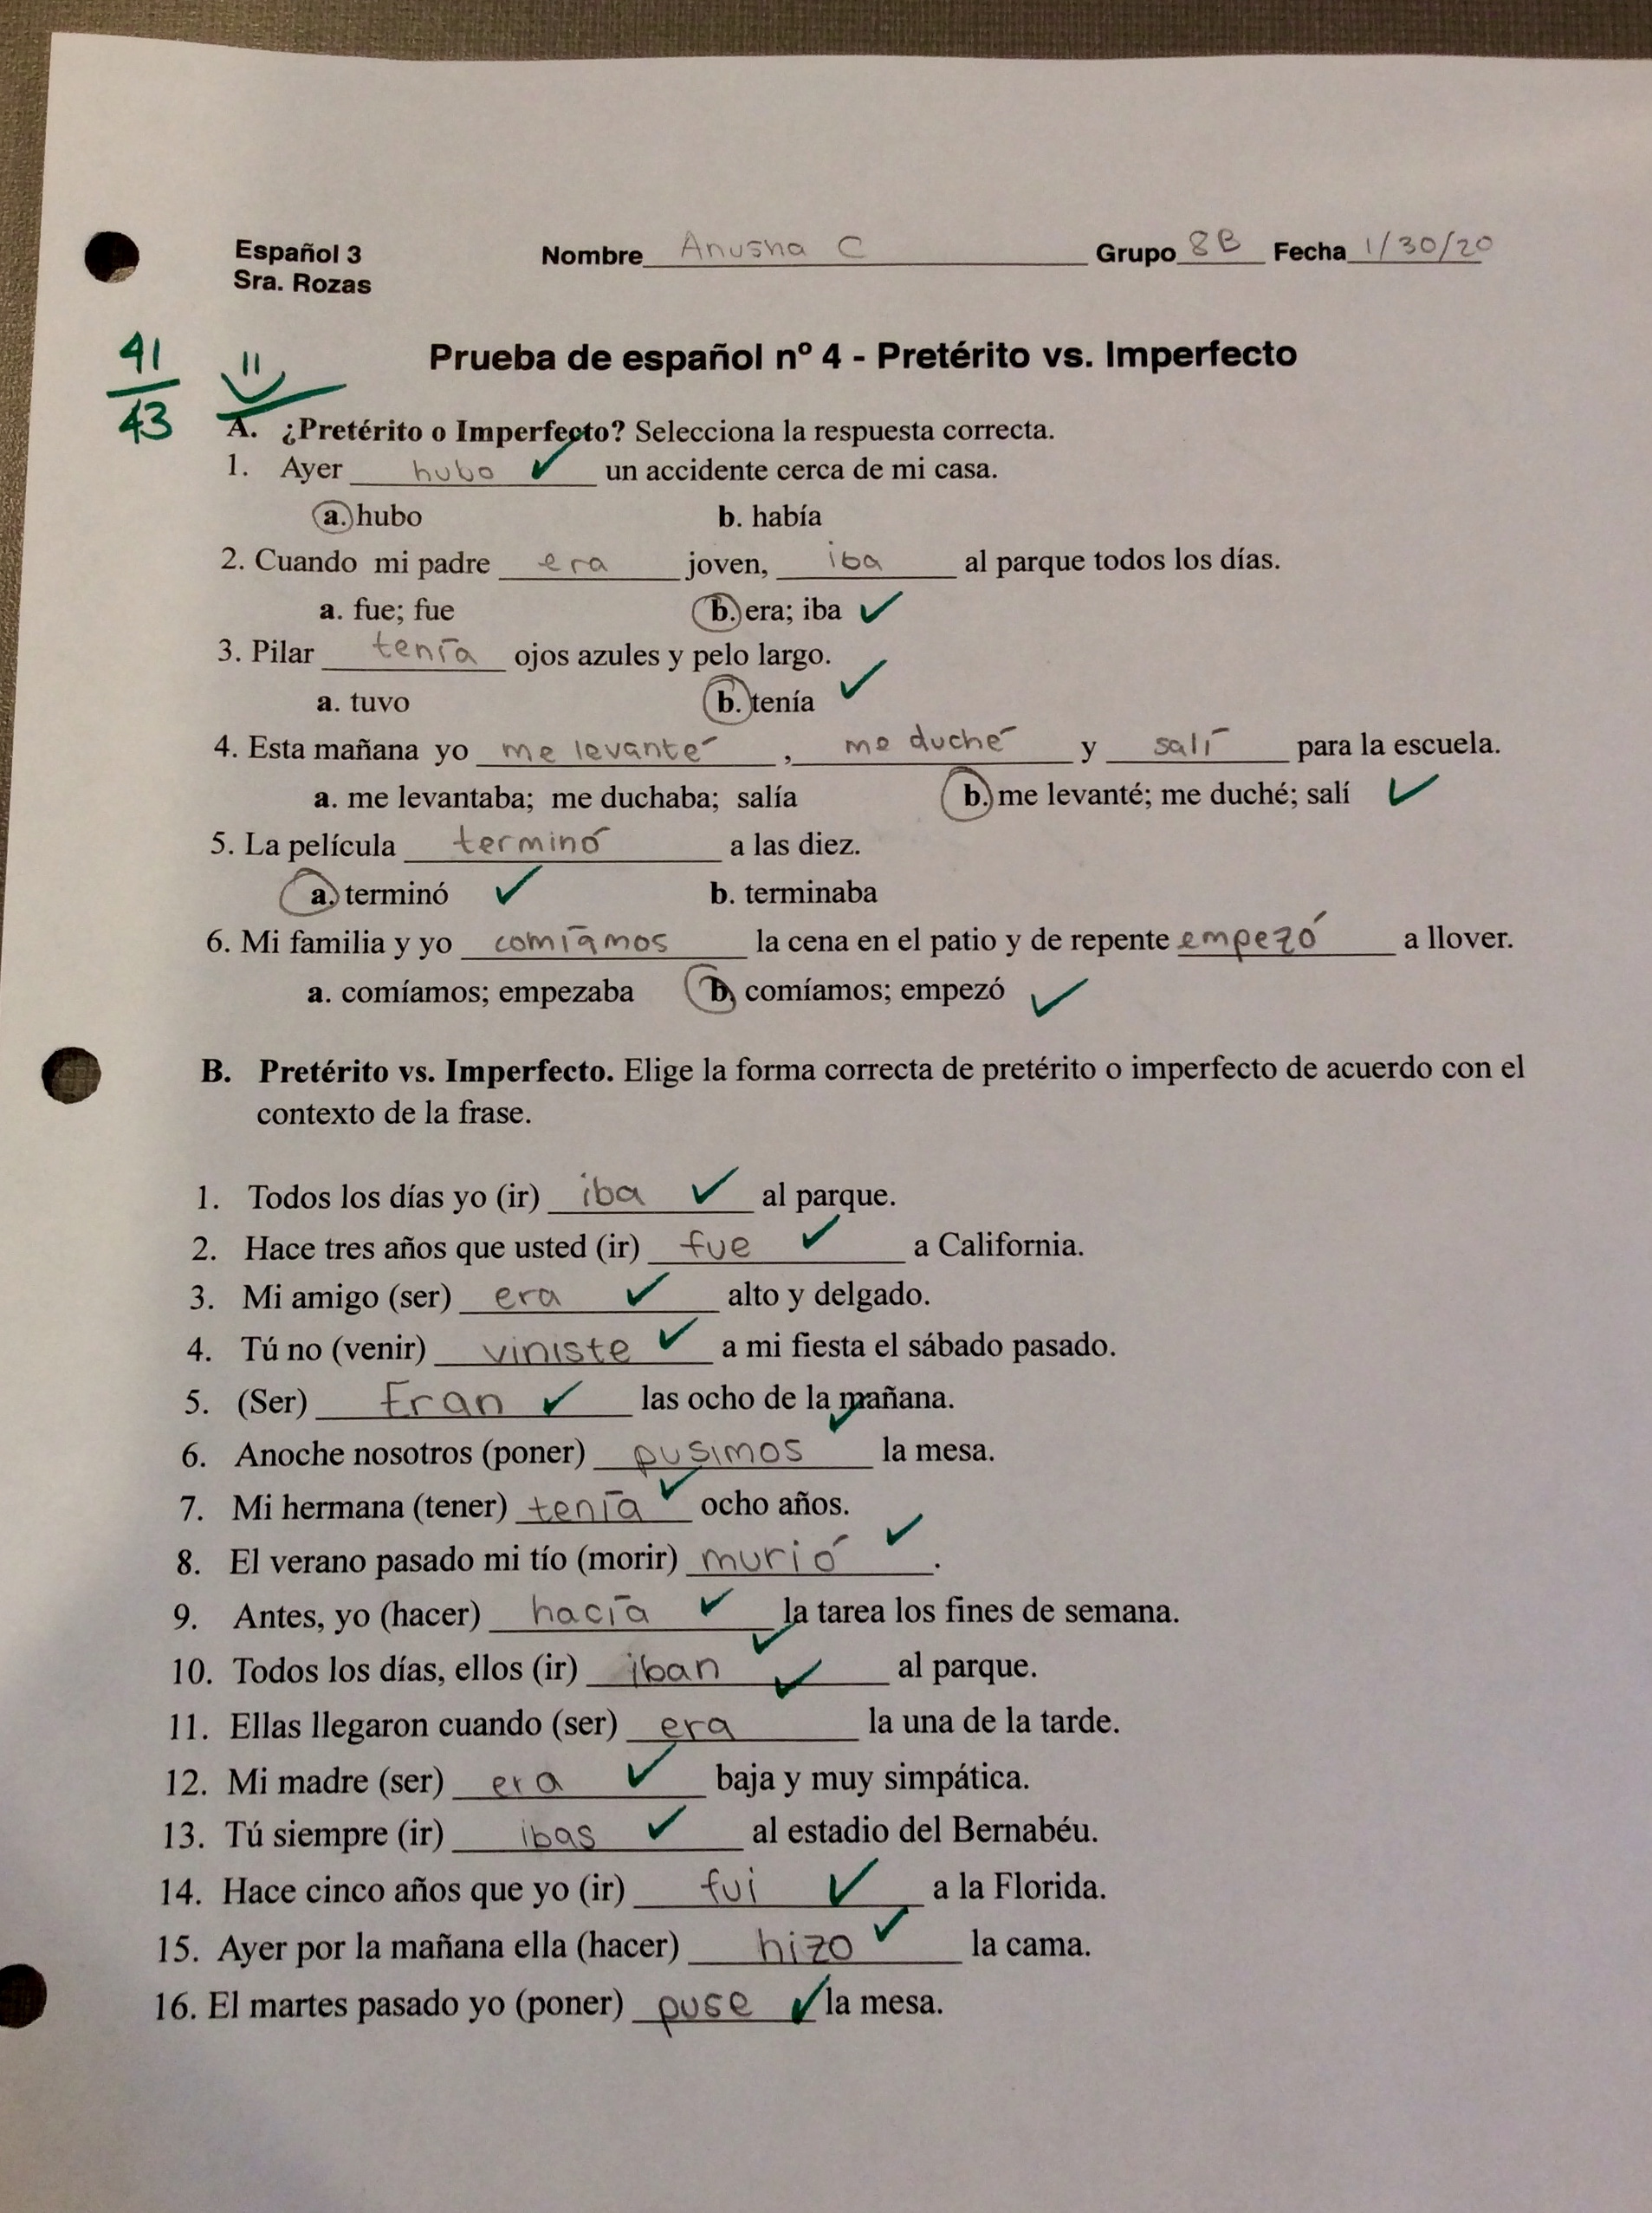 Español 3 Nombre Anusha C Grupo 8B Fecha 1/30/20
Sra. Rozas
41
43
Prueba de español nº 4 - Pretérito vs. Imperfecto
A. ¿Pretérito o Imperfecto? Selecciona la respuesta correcta.
1. Ayer hubo un accidente cerca de mi casa.
a. hubo b. había
2. Cuando mi padre era joven, iba al parque todos los días.
a. fue; fue b. era; iba
3. Pilar tenía ojos azules y pelo largo.
a. tuvo b. tenía
4. Esta mañana yo me levanté, me duché y salí para la escuela.
a. me levantaba; me duchaba; salía b. me levanté; me duché; salí
5. La película terminó a las diez.
a. terminó b. terminaba
6. Mi familia y yo comíamos la cena en el patio y de repente empezó a llover.
a. comíamos; empezaba b. comíamos; empezó
B. Pretérito vs. Imperfecto. Elige la forma correcta de pretérito o imperfecto de acuerdo con el
contexto de la frase.
1. Todos los días yo (ir) iba al parque.
2. Hace tres años que usted (ir) fue a California.
3. Mi amigo (ser) era alto y delgado.
4. Tú no (venir) viniste a mi fiesta el sábado pasado.
5. (Ser) Eran las ocho de la mañana.
6. Anoche nosotros (poner) pusimos la mesa.
7. Mi hermana (tener) tenía ocho años.
8. El verano pasado mi tío (morir) murió.
9. Antes, yo (hacer) hacía la tarea los fines de semana.
10. Todos los días, ellos (ir) iban al parque.
11. Ellas llegaron cuando (ser) era la una de la tarde.
12. Mi madre (ser) era baja y muy simpática.
13. Tú siempre (ir) ibas al estadio del Bernabéu.
14. Hace cinco años que yo (ir) fui a la Florida.
15. Ayer por la mañana ella (hacer) hizo la cama.
16. El martes pasado yo (poner) puse la mesa.